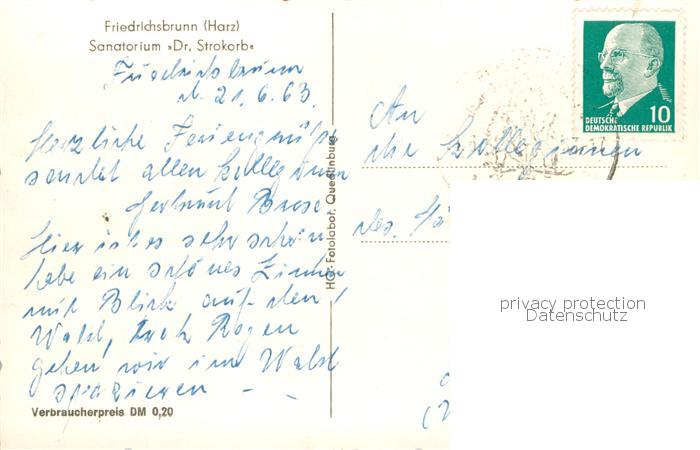 Friedrichsbrunn (Harz)
Sanatorium »Dr. Strokorb«
Friedrichsbrunn
d. 21.6.63.
Herzliche Feriengrüße
sendet allen Kolleginnen
Gertraut
Hier ist es sehr schön
habe ein schönes Zimmer
mit Blick auf den
Wald, trotz Regen
gehen wir im Wald
spazieren - -
Verbraucherpreis DM 0,20
HG-Fotolabor, Quedlinburg
DEUTSCHE
DEMOKRATISCHE REPUBLIK
10
An
die Kolleginnen
des
privacy protection
Datenschutz